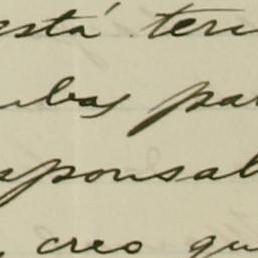 está ter
ubas pa
sponsal
creo qu